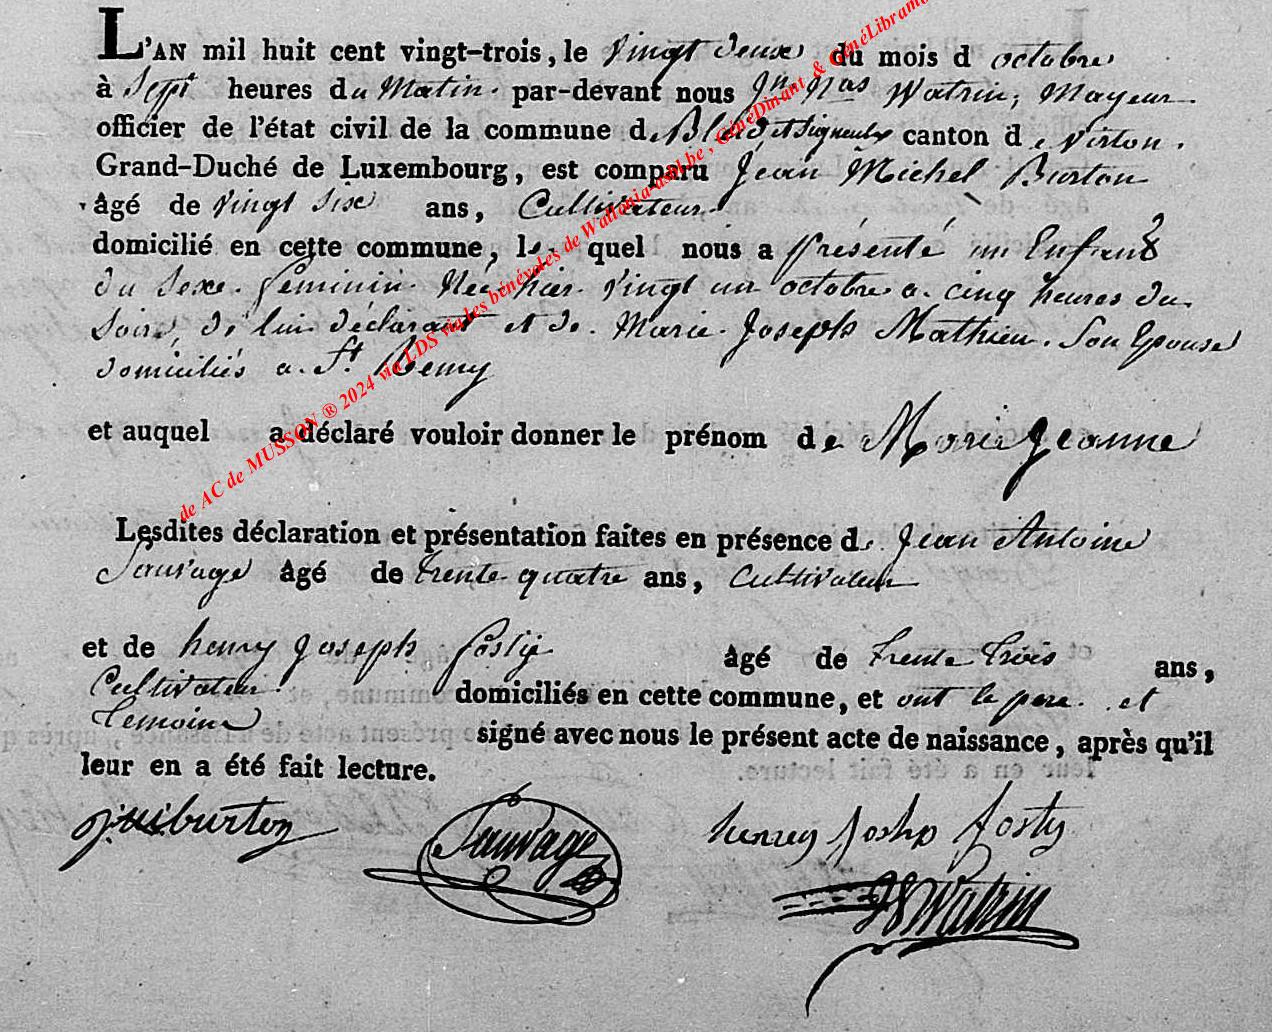 L'AN mil huit cent vingt-trois, le vingt deux du mois d octobre
à Sept heures du Matin. par-devant nous Jn. Nas Watrin, Mayeur
officier de l'état civil de la commune de Bleid et Signeulx canton de Virton.
Grand-Duché de Luxembourg, est comparu Jean Michel Burton
âgé de vingt Six ans, Cultivateur
domicilié en cette commune, le quel nous a présenté un Enfant
du Sexe feminin Née hier vingt un octobre a cinq heures du
Soir, de lui déclarant et de Marie Joseph Mathieu Son Epouse
domiciliés a St. Remy
et auquel a déclaré vouloir donner le prénom de Marie Jeanne
Lesdites déclaration et présentation faites en présence de Jean Antoine
Sauvage âgé de trente quatre ans, Cultivateur
et de henry Joseph fosty âgé de trente trois ans,
Cultivateur domiciliés en cette commune, et ont le pere et
temoins signé avec nous le présent acte de naissance, après qu'il
leur en a été fait lecture.
burton Sauvage henrey Joshp fosty
Watrin
de AC de MUSSON ® 2024 via LDS via les bénévoles de Wallonia-asbl.be, GénéDinant & GénéLibramo